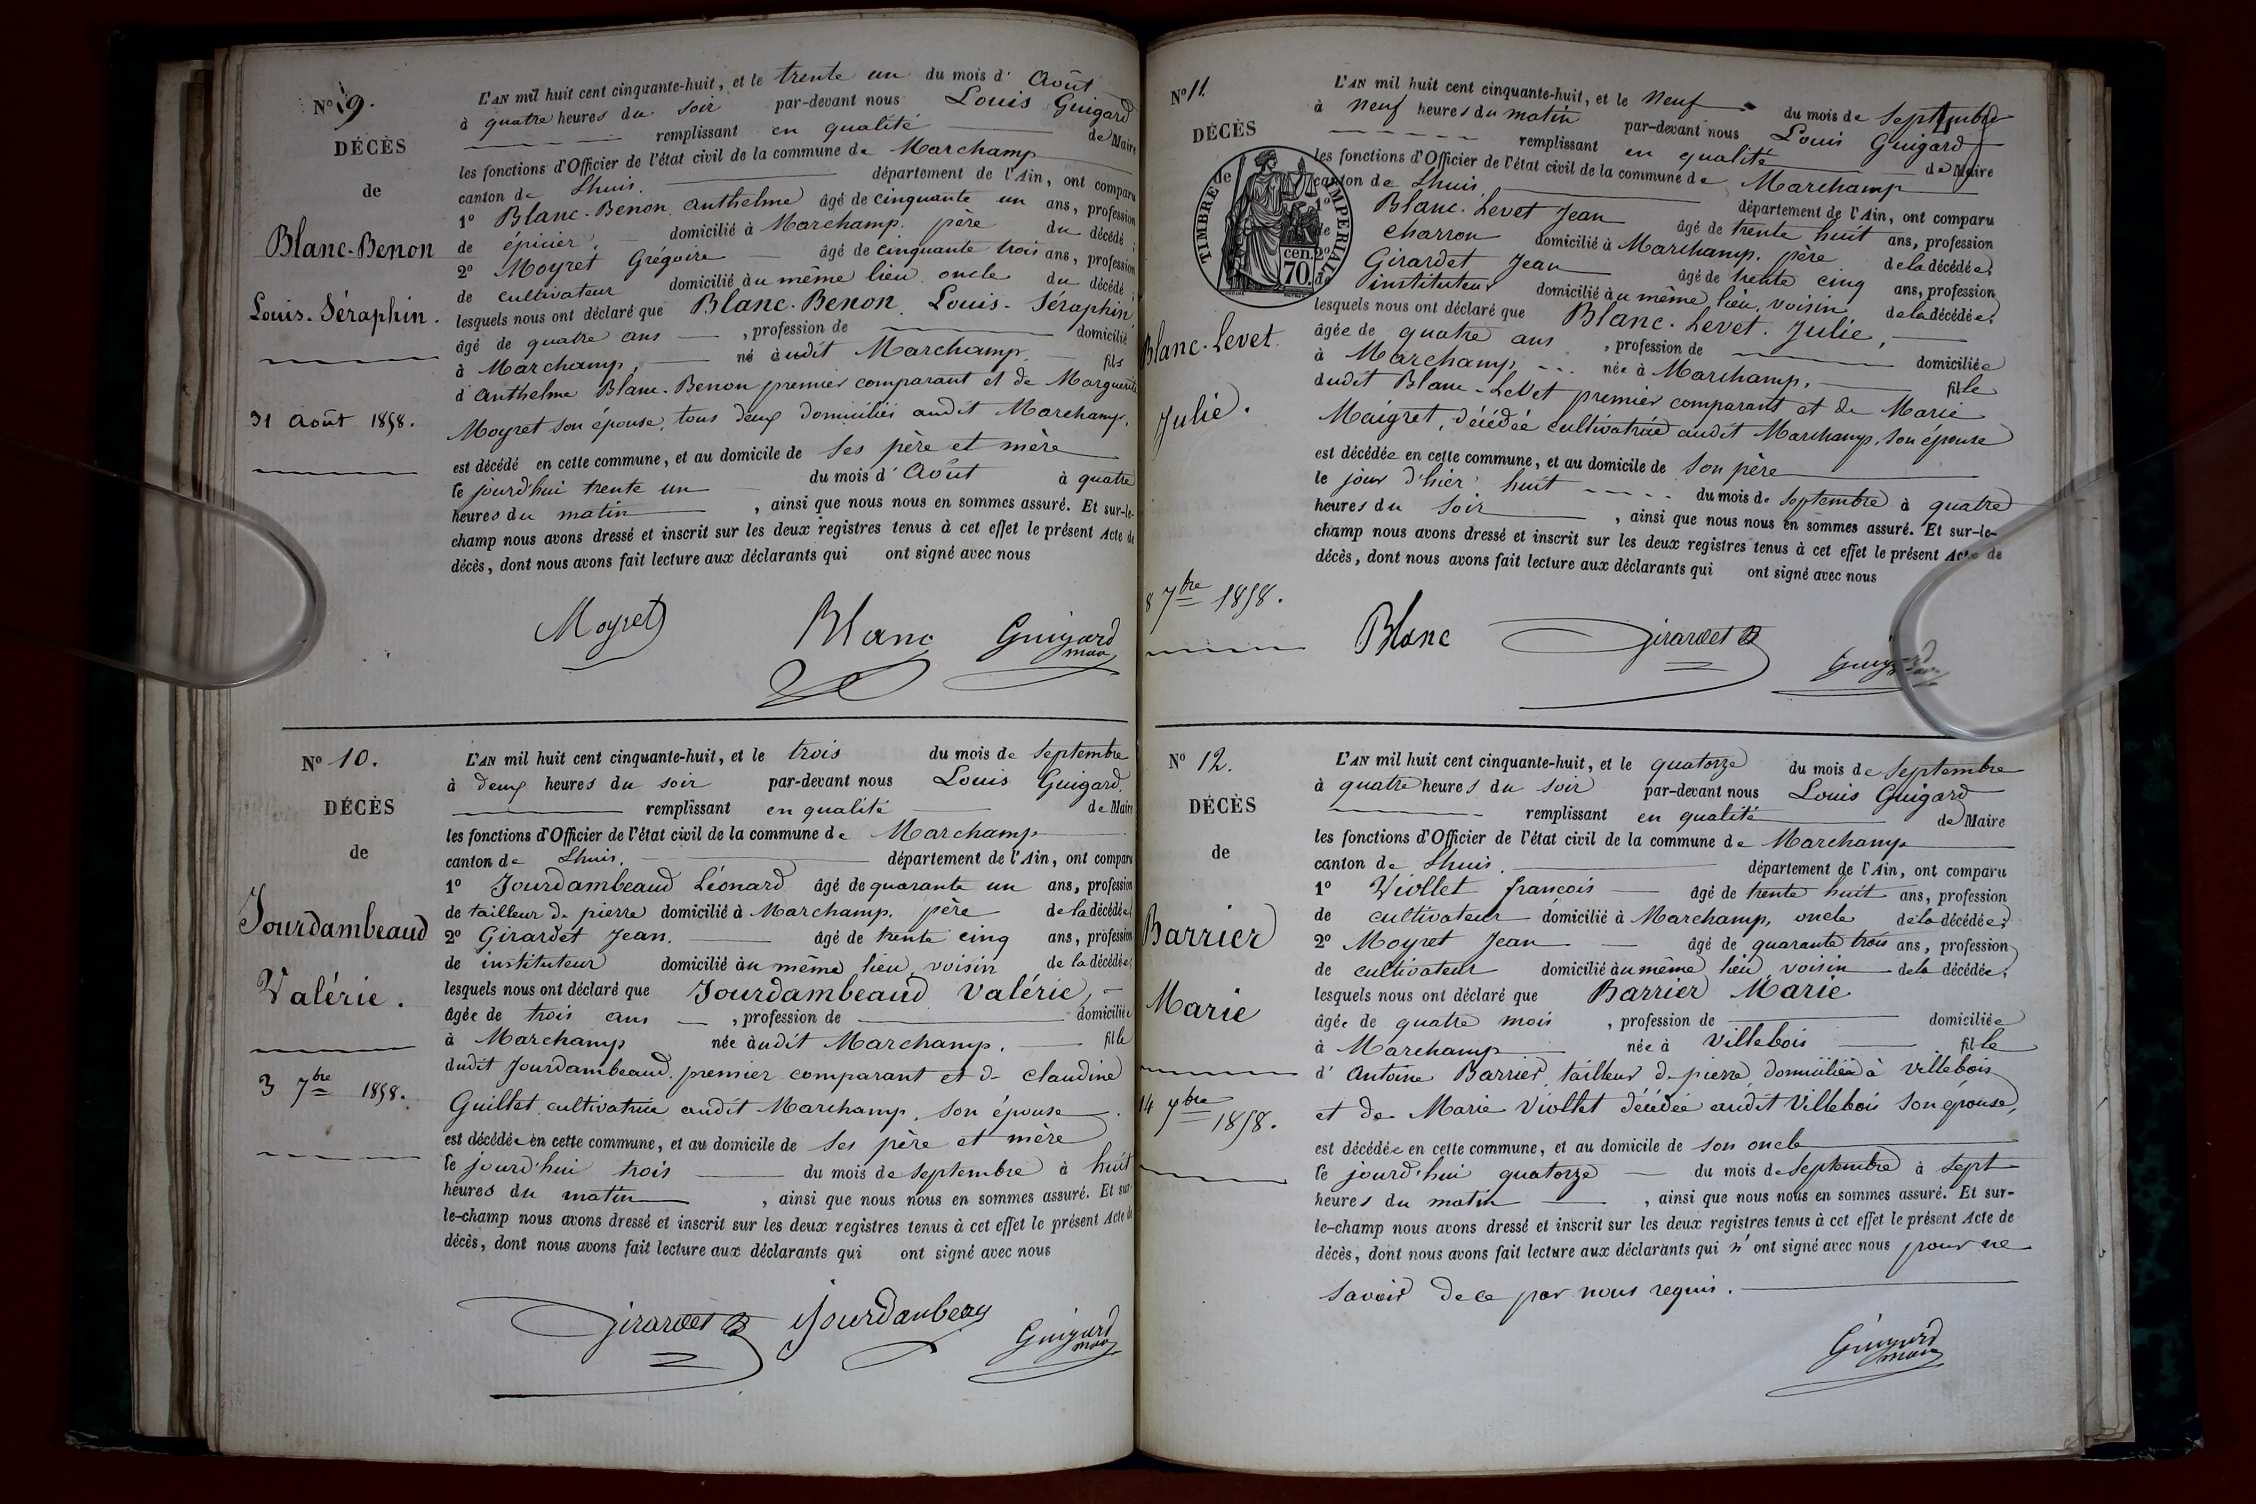 N° 9.
DÉCÈS
de
Blanc-Benon
Louis-Séraphin.
31 Août 1858.
L'AN mil huit cent cinquante-huit, et le trente un du mois d' Août
à quatre heures du soir par-devant nous Louis Guigard
remplissant en qualité de Maire
les fonctions d'Officier de l'état civil de la commune de Marchamp
canton de Lhuis. département de l'Ain, ont comparu
1° Blanc-Benon anthelme âgé de cinquante un ans, profession
de épicier, domicilié à Marchamp. père du décédé;
2° Moyret Grégoire âgé de cinquante trois ans, profession
de cultivateur domicilié au même lieu oncle du décédé;
lesquels nous ont déclaré que Blanc-Benon. Louis-Séraphin
âgé de quatre ans , profession de domicilié
à Marchamp, né audit Marchamp. fils
d'anthelme Blanc-Benon premier comparant et de Marguerite
Moyret son épouse, tous deux domiciliés audit Marchamp,
est décédé en cette commune, et au domicile de ses père et mère
le jourd'hui trente un du mois d'Août à quatre
heures du matin , ainsi que nous nous en sommes assuré. Et sur-le-
champ nous avons dressé et inscrit sur les deux registres tenus à cet effet le présent Acte de
décès, dont nous avons fait lecture aux déclarants qui ont signé avec nous
Moyret Blanc Guigard
N° 10.
DÉCÈS
de
Jourdambeaud
Valérie.
3 7bre 1858.
L'AN mil huit cent cinquante-huit, et le trois du mois de septembre
à deux heures du soir par-devant nous Louis Guigard.
remplissant en qualité de Maire
les fonctions d'Officier de l'état civil de la commune de Marchamp
canton de Lhuis. département de l'Ain, ont comparu
1° Jourdambeaud Léonard âgé de quarante un ans, profession
de tailleur de pierre domicilié à Marchamp. père de la décédée;
2° Girardet Jean. âgé de trente cinq ans, profession
de instituteur domicilié au même lieu, voisin de la décédée;
lesquels nous ont déclaré que Jourdambeaud Valérie,
âgée de trois ans , profession de domiciliée
à Marchamp née audit Marchamp. fille
dudit Jourdambeaud. premier comparant et de claudine
Guillet cultivatrice audit Marchamp. son épouse
est décédée en cette commune, et au domicile de ses père et mère
le jourd'hui trois du mois de septembre à huit
heures du matin , ainsi que nous nous en sommes assuré. Et sur-
le-champ nous avons dressé et inscrit sur les deux registres tenus à cet effet le présent Acte de
décès, dont nous avons fait lecture aux déclarants qui ont signé avec nous
Girardet Jourdanbeau Guigard
N° 11.
DÉCÈS
de
TIMBRE IMPERIAL
cen.
70.
Blanc-Levet
Julie.
8 7bre 1858.
L'AN mil huit cent cinquante-huit, et le Neuf du mois de septembre
à neuf heures du matin par-devant nous Louis Guigard
remplissant en qualité de Maire
les fonctions d'Officier de l'état civil de la commune de Marchamp
canton de Lhuis. département de l'Ain, ont comparu
1° Blanc-Levet Jean âgé de trente huit ans, profession
de charron domicilié à Marchamp. père de la décédée;
2° Girardet Jean âgé de trente cinq ans, profession
de instituteur domicilié au même lieu, voisin de la décédée;
lesquels nous ont déclaré que Blanc-Levet. Julie,
âgée de quatre ans , profession de domiciliée
à Marchamp, née à Marchamp. fille
dudit Blanc-Levet premier comparant et de Marie
Maigret, décédée cultivatrice audit Marchamp, son épouse
est décédée en cette commune, et au domicile de son père
le jour d'hier huit du mois de septembre à quatre
heures du soir , ainsi que nous nous en sommes assuré. Et sur-le-
champ nous avons dressé et inscrit sur les deux registres tenus à cet effet le présent Acte de
décès, dont nous avons fait lecture aux déclarants qui ont signé avec nous
Blanc Girardet Guigard
N° 12.
DÉCÈS
de
Barrier
Marie
14 7bre 1858.
L'AN mil huit cent cinquante-huit, et le quatorze du mois de septembre
à quatre heures du soir par-devant nous Louis Guigard
remplissant en qualité de Maire
les fonctions d'Officier de l'état civil de la commune de Marchamp
canton de Lhuis. département de l'Ain, ont comparu
1° Viollet françois âgé de trente huit ans, profession
de cultivateur domicilié à Marchamp, oncle de la décédée;
2° Moyret Jean âgé de quarante trois ans, profession
de cultivateur domicilié au même lieu, voisin de la décédée;
lesquels nous ont déclaré que Barrier Marie
âgée de quatre mois , profession de domiciliée
à Marchamp née à Villebois fille
d'Antoine Barrier, tailleur de pierre, domicilié à Villebois
et de Marie Viollet décédée audit Villebois son épouse,
est décédée en cette commune, et au domicile de son oncle
le jourd'hui quatorze du mois de septembre à sept
heures du matin , ainsi que nous nous en sommes assuré. Et sur-
le-champ nous avons dressé et inscrit sur les deux registres tenus à cet effet le présent Acte de
décès, dont nous avons fait lecture aux déclarants qui n'ont signé avec nous pour ne
savoir de ce par nous requis.
Guigard